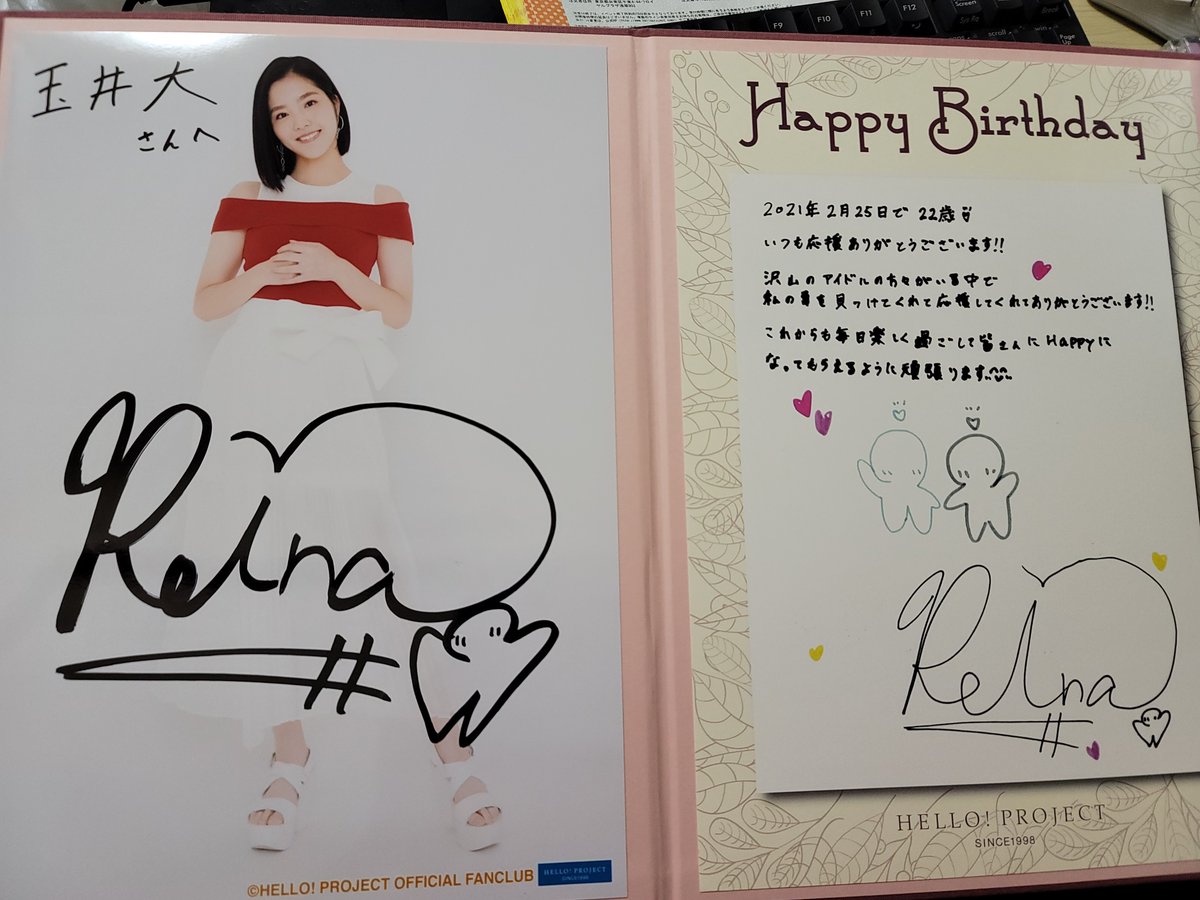 玉井大
さんへ
Reina
©HELLO! PROJECT OFFICIAL FANCLUB
HELLO! PROJECT
SINCE1998
Happy Birthday
2021年2月25日で 22歳
いつも応援ありがとうございます!!
沢山のアイドルの方々がいる中で
私の事を見つけてくれて応援してくれてありがとうございます!!
これからも毎日楽しく過ごして皆さんにHappyに
なってもらえるように頑張ります
Reina
HELLO! PROJECT
SINCE1998
F9
F10
F11
F12
Screen
Break
Page
Up